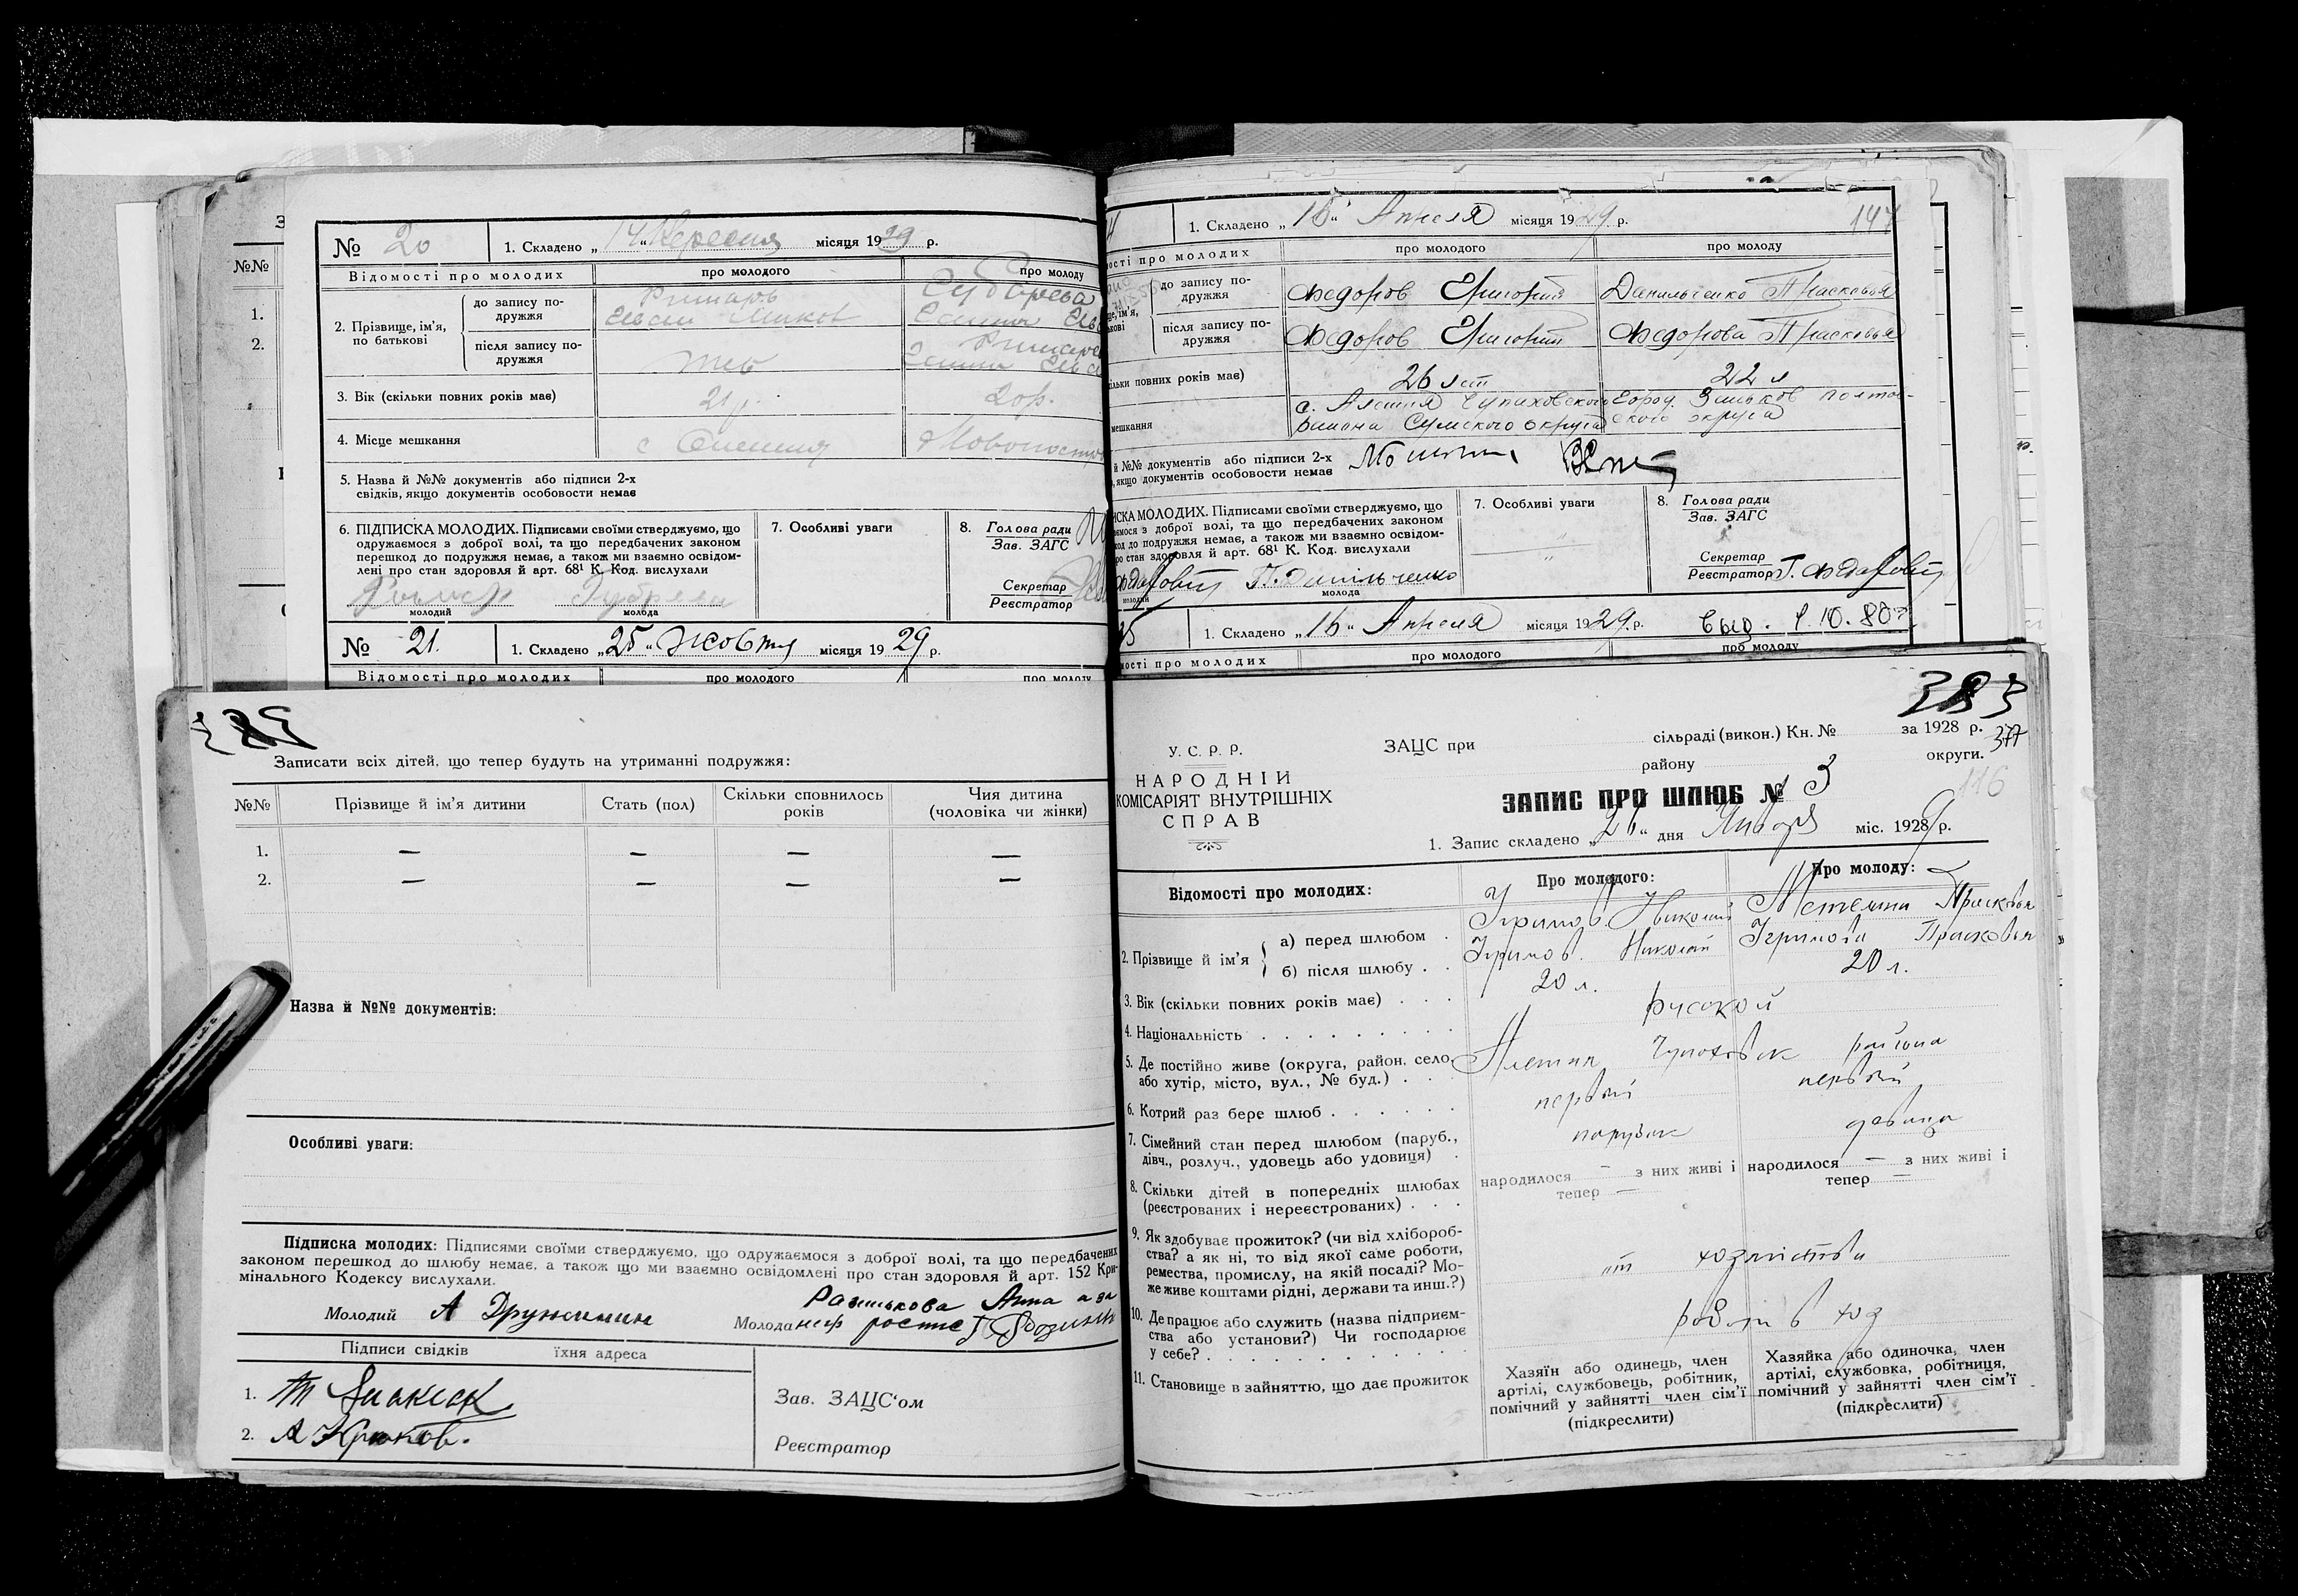 № 20
1. Складено „14“ Вересня місяця 1929 р.
Відомості про молодих
про молодого
про молоду
2. Прізвище, ім'я, по батькові
до запису по-
дружжя
після запису по-
дружжя
3. Вік (скільки повних років має)
21 р.
20 р.
4. Місце мешкання
5. Назва й №№ документів або підписи 2-х
свідків, якщо документів особовости немає
6. ПІДПИСКА МОЛОДИХ. Підписами своїми стверджуємо, що
одружаємося з доброї волі, та що передбачених законом
перешкод до подружжя немає, а також ми взаємно освідом-
лені про стан здоровля й арт. 68¹ К. Код. вислухали
молодий
молода
7. Особливі уваги
8. Голова ради
Зав. ЗАГС
Секретар
Реєстратор
№ 21.
1. Складено „25“ Жовтня місяця 1929 р.
Відомості про молодих
про молодого
про молоду
1. Складено „15“ Апреля місяця 1929 р.
147
ості про молодих
про молодого
про молоду
до запису по-
дружжя
Федоров Григорий
Данильченко Прасковья
після запису по-
дружжя
Федоров Григорий
Федорова Прасковья
ільки повних років має)
26 лет
22 л
мешкання
с. Алешня Чупаховского
района Сумского округа
город. Зиньков Полтав-
ского округа
й №№ документів або підписи 2-х
, якщо документів особовости немає
ИСКА МОЛОДИХ. Підписами своїми стверджуємо, що
ємося з доброї волі, та що передбачених законом
код до подружжя немає, а також ми взаємно освідом-
ро стан здоровля й арт. 68¹ К. Код. вислухали
П. Данільченко
молодий
молода
7. Особливі уваги
8. Голова ради
Зав. ЗАГС
Секретар
Реєстратор
1. Складено „16“ Апреля місяця 1929 р.
ості про молодих
про молодого
про молоду
Записати всіх дітей, що тепер будуть на утриманні подружжя:
№№
Прізвище й ім'я дитини
Стать (пол)
Скільки сповнилось
років
Чия дитина
(чоловіка чи жінки)
1. — — — —
2. — — — —
Назва й №№ документів:
Особливі уваги:
Підписка молодих: Підписями своїми стверджуємо, що одружаємося з доброї волі, та що передбачених
законом перешкод до шлюбу немає, а також що ми взаємно освідомлені про стан здоровля й арт. 152 Кри-
мінального Кодексу вислухали.
Молодий А Дружинин
Молода
Анна а за
Підписи свідків
їхня адреса
1.
2. А Крюков.
Зав. ЗАЦС'ом
Реєстратор
383
377
116
У. С. Р. Р.
НАРОДНІЙ
КОМІСАРІЯТ ВНУТРІШНІХ
СПРАВ
ЗАЦС при
сільраді (викон.) Кн. №
за 1928 р.
району
округи.
ЗАПИС ПРО ШЛЮБ № 3
1. Запис складено „21“ дня Января міс. 1929 р.
Відомості про молодих:
Про молодого:
Про молоду:
2. Прізвище й ім'я
а) перед шлюбом
Николай
Прасковья
б) після шлюбу
Николай
Прасковья
3. Вік (скільки повних років має)
20 л.
20 л.
4. Національність
русской
5. Де постійно живе (округа, район, село
або хутір, місто, вул., № буд.)
Алешня Чупаховск района
6. Котрий раз бере шлюб
первый
первый
7. Сімейний стан перед шлюбом (паруб.,
дівч., розлуч., удовець або удовиця)
парубок
девица
8. Скільки дітей в попередніх шлюбах
(реєстрованих і нереєстрованих)
народилося — з них живі і
тепер —
народилося — з них живі і
тепер —
9. Як здобуває прожиток? (чи від хлібороб-
ства? а як ні, то від якої саме роботи,
ремества, промислу, на якій посаді? Мо-
же живе коштами рідні, держави та инш.?)
от хозяйства
10. Де працює або служить (назва підприєм-
ства або установи?) Чи господарює
у себе?
11. Становище в зайняттю, що дає прожиток
Хазяїн або одинець, член
артілі, службовець, робітник,
помічний у зайнятті член сім'ї
(підкреслити)
Хазяйка або одиночка, член
артілі, службовка, робітниця,
помічний у зайнятті член сім'ї
(підкреслити)